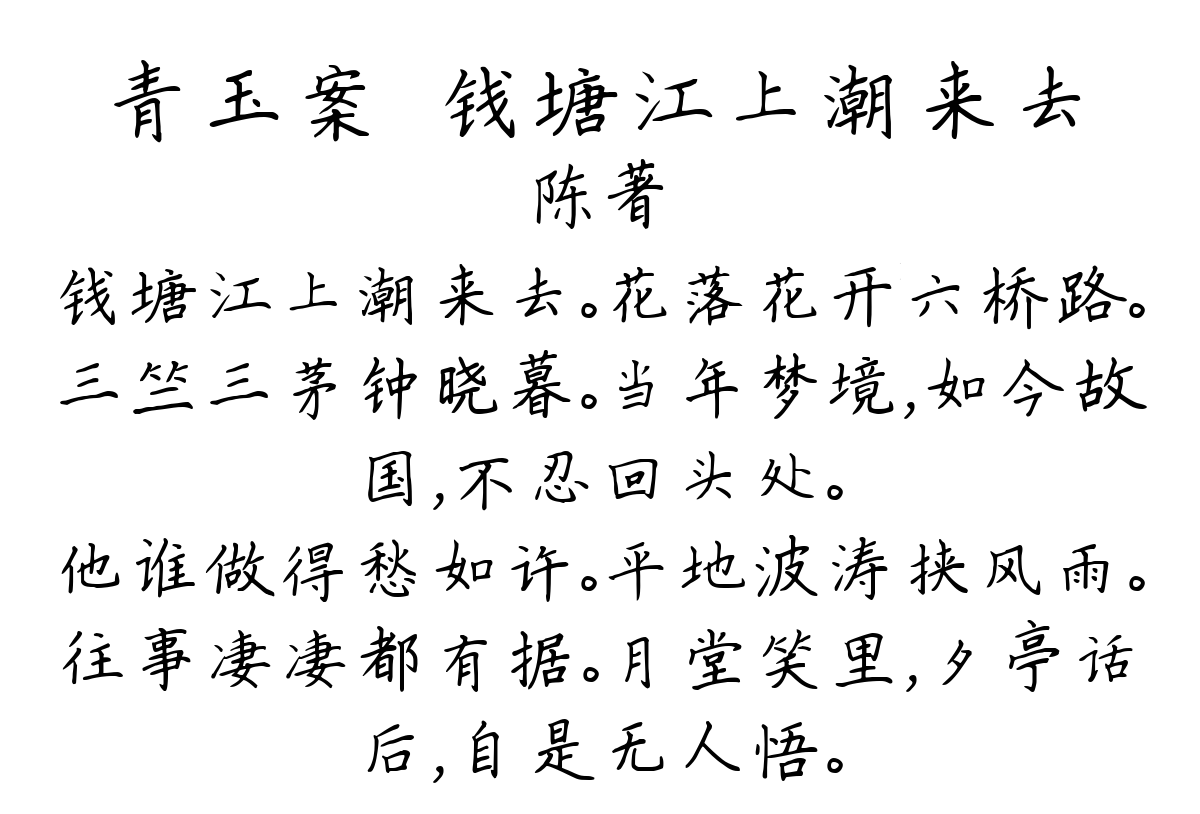 青玉案 钱塘江上潮来去
陈著
钱塘江上潮来去。花落花开六桥路。
三竺三茅钟晓暮。当年梦境,如今故
国,不忍回头处。
他谁做得愁如许。平地波涛挟风雨。
往事凄凄都有据。月堂笑里,夕亭话
后,自是无人悟。